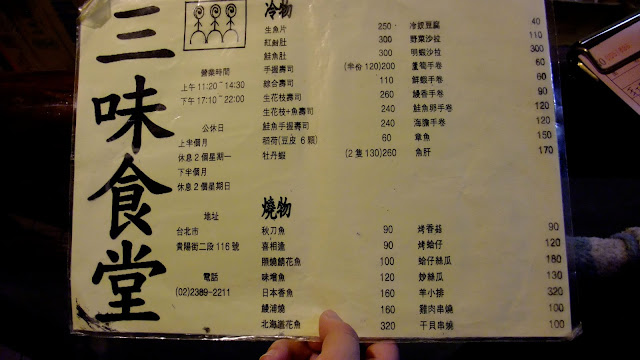 三味食堂
營業時間
上午11:20~14:30
下午17:10~22:00
公休日
上半個月
休息2個星期一
下半個月
休息2個星期日
地址
台北市
貴陽街二段116號
電話
(02)2389-2211
冷物
生魚片 250 豆腐 40
紅魽肚 300 野菜沙拉 110
鮭魚肚 300 明蝦沙拉 300
手握壽司 (半份120)200 蘆筍手卷 60
綜合壽司 110 鮮蝦手卷 60
生花枝壽司 260 鰻香手卷 90
生花枝+魚壽司 240 鮭魚卵手卷 120
鮭魚手握壽司 240 海膽手卷 120
稻荷(豆皮 6顆) 60 章魚 150
牡丹蝦 (2隻130)260 魚肝 170
燒物
秋刀魚 90 烤香菇 90
喜相逢 90 烤蛤仔 120
照燒花魚 100 蛤仔絲瓜 180
味增魚 120 炒絲瓜 130
日本香魚 160 羊小排 320
鰻浦燒 160 雞肉串燒 100
北海道花魚 320 干貝串燒 100